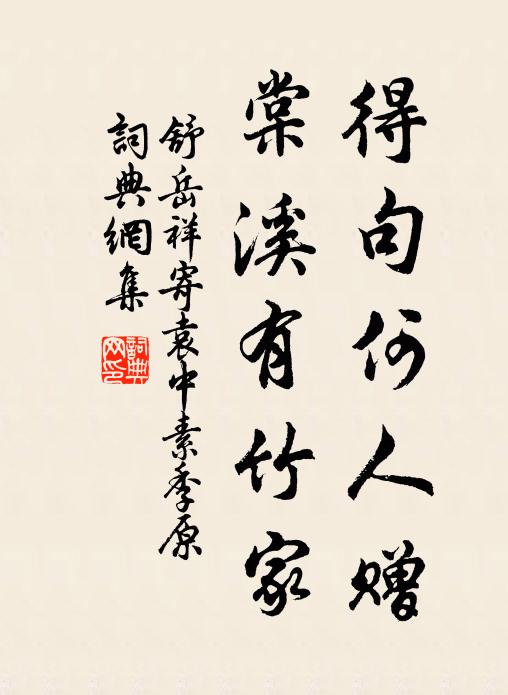 得句何人赠
棠溪有竹家
舒岳祥寄袁中素季原
詞典網集
詞典網印